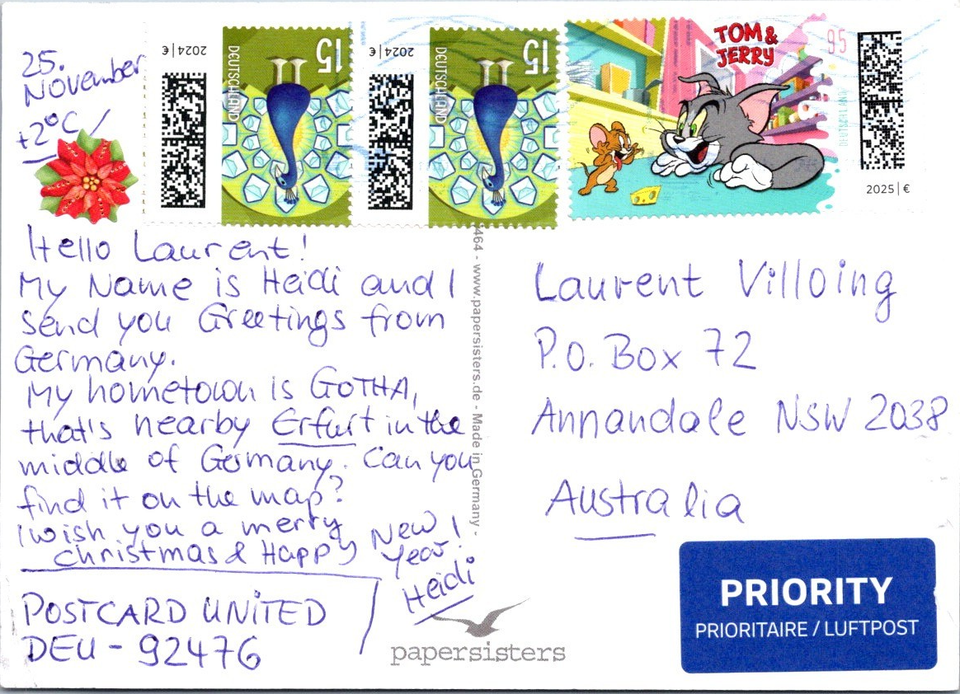 25.
November
+2°C
2024 | €
DEUTSCHLAND
15
2024 | €
DEUTSCHLAND
15
TOM &
JERRY
95
2025 | €
Hello Laurent!
My Name is Heidi and I
send you Greetings from
Germany.
My hometown is GOTHA,
that's nearby Erfurt in the
middle of Germany. Can you
find it on the map?
I wish you a merry
christmas & Happy New
Year!
Heidi
POSTCARD UNITED
DEU - 92476
464 - www.papersisters.de - Made in Germany -
papersisters
Laurent Villoing
P.O. Box 72
Annandale NSW 2038
Australia
PRIORITY
PRIORITAIRE / LUFTPOST